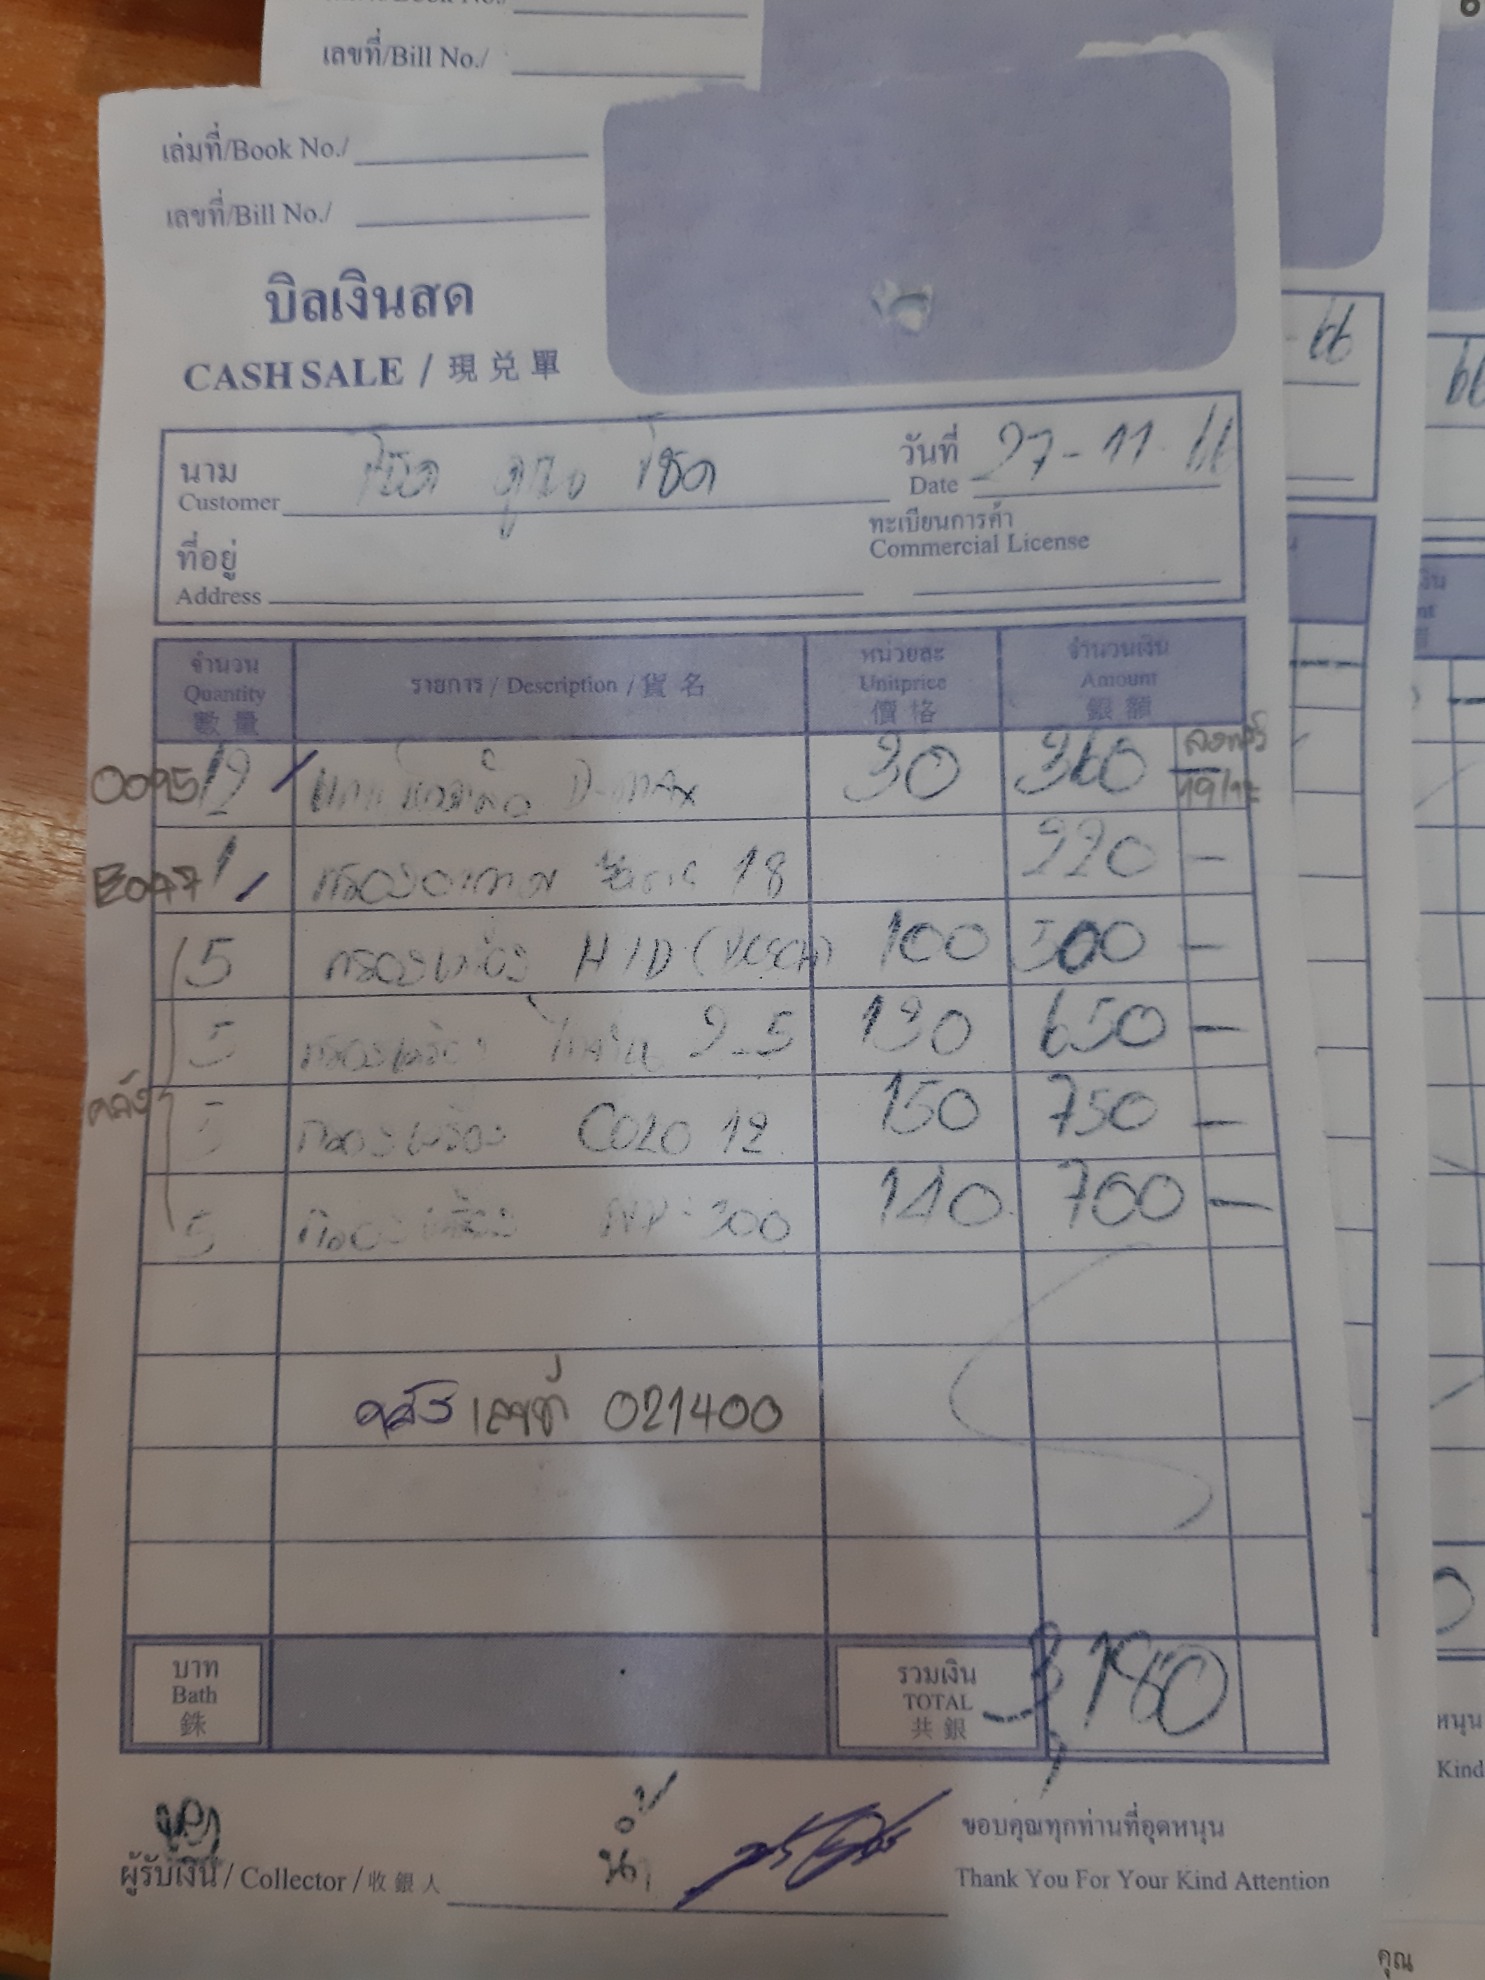 เลขที่/Bill No./
เล่มที่/Book No./
เลขที่/Bill No./
บิลเงินสด
CASH SALE / 現兌單
66
66
นาม
Customer
โชค โชค
วันที่
Date
27-11-66
ที่อยู่
Address
ทะเบียนการค้า
Commercial License
จำนวน
Quantity
數量
รายการ / Description / 貨名
หน่วยละ
Unitprice
價格
จำนวนเงิน
Amount
銀額
0095 12 D-MAX 30 360
19/12
E047 1 กรองอากาศ 18 220 -
5 กรองเครื่อง H/D 100 500 -
5 กรองเครื่อง 2.5 130 650 -
คลัง 5 กรองเครื่อง COLO 12 150 750 -
5 กรองเครื่อง 300 140 700 -
คลัง เลขที่ 021400
บาท
Bath
銖
รวมเงิน
TOTAL
共銀
3,180
ผู้รับเงิน / Collector / 收銀人
ขอบคุณทุกท่านที่อุดหนุน
Thank You For Your Kind Attention
หนุน
Kind
คุณ